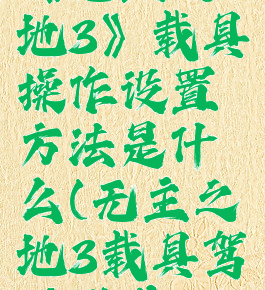 地3》载具
操作设置
方法是什
么(无主之
地3载具驾